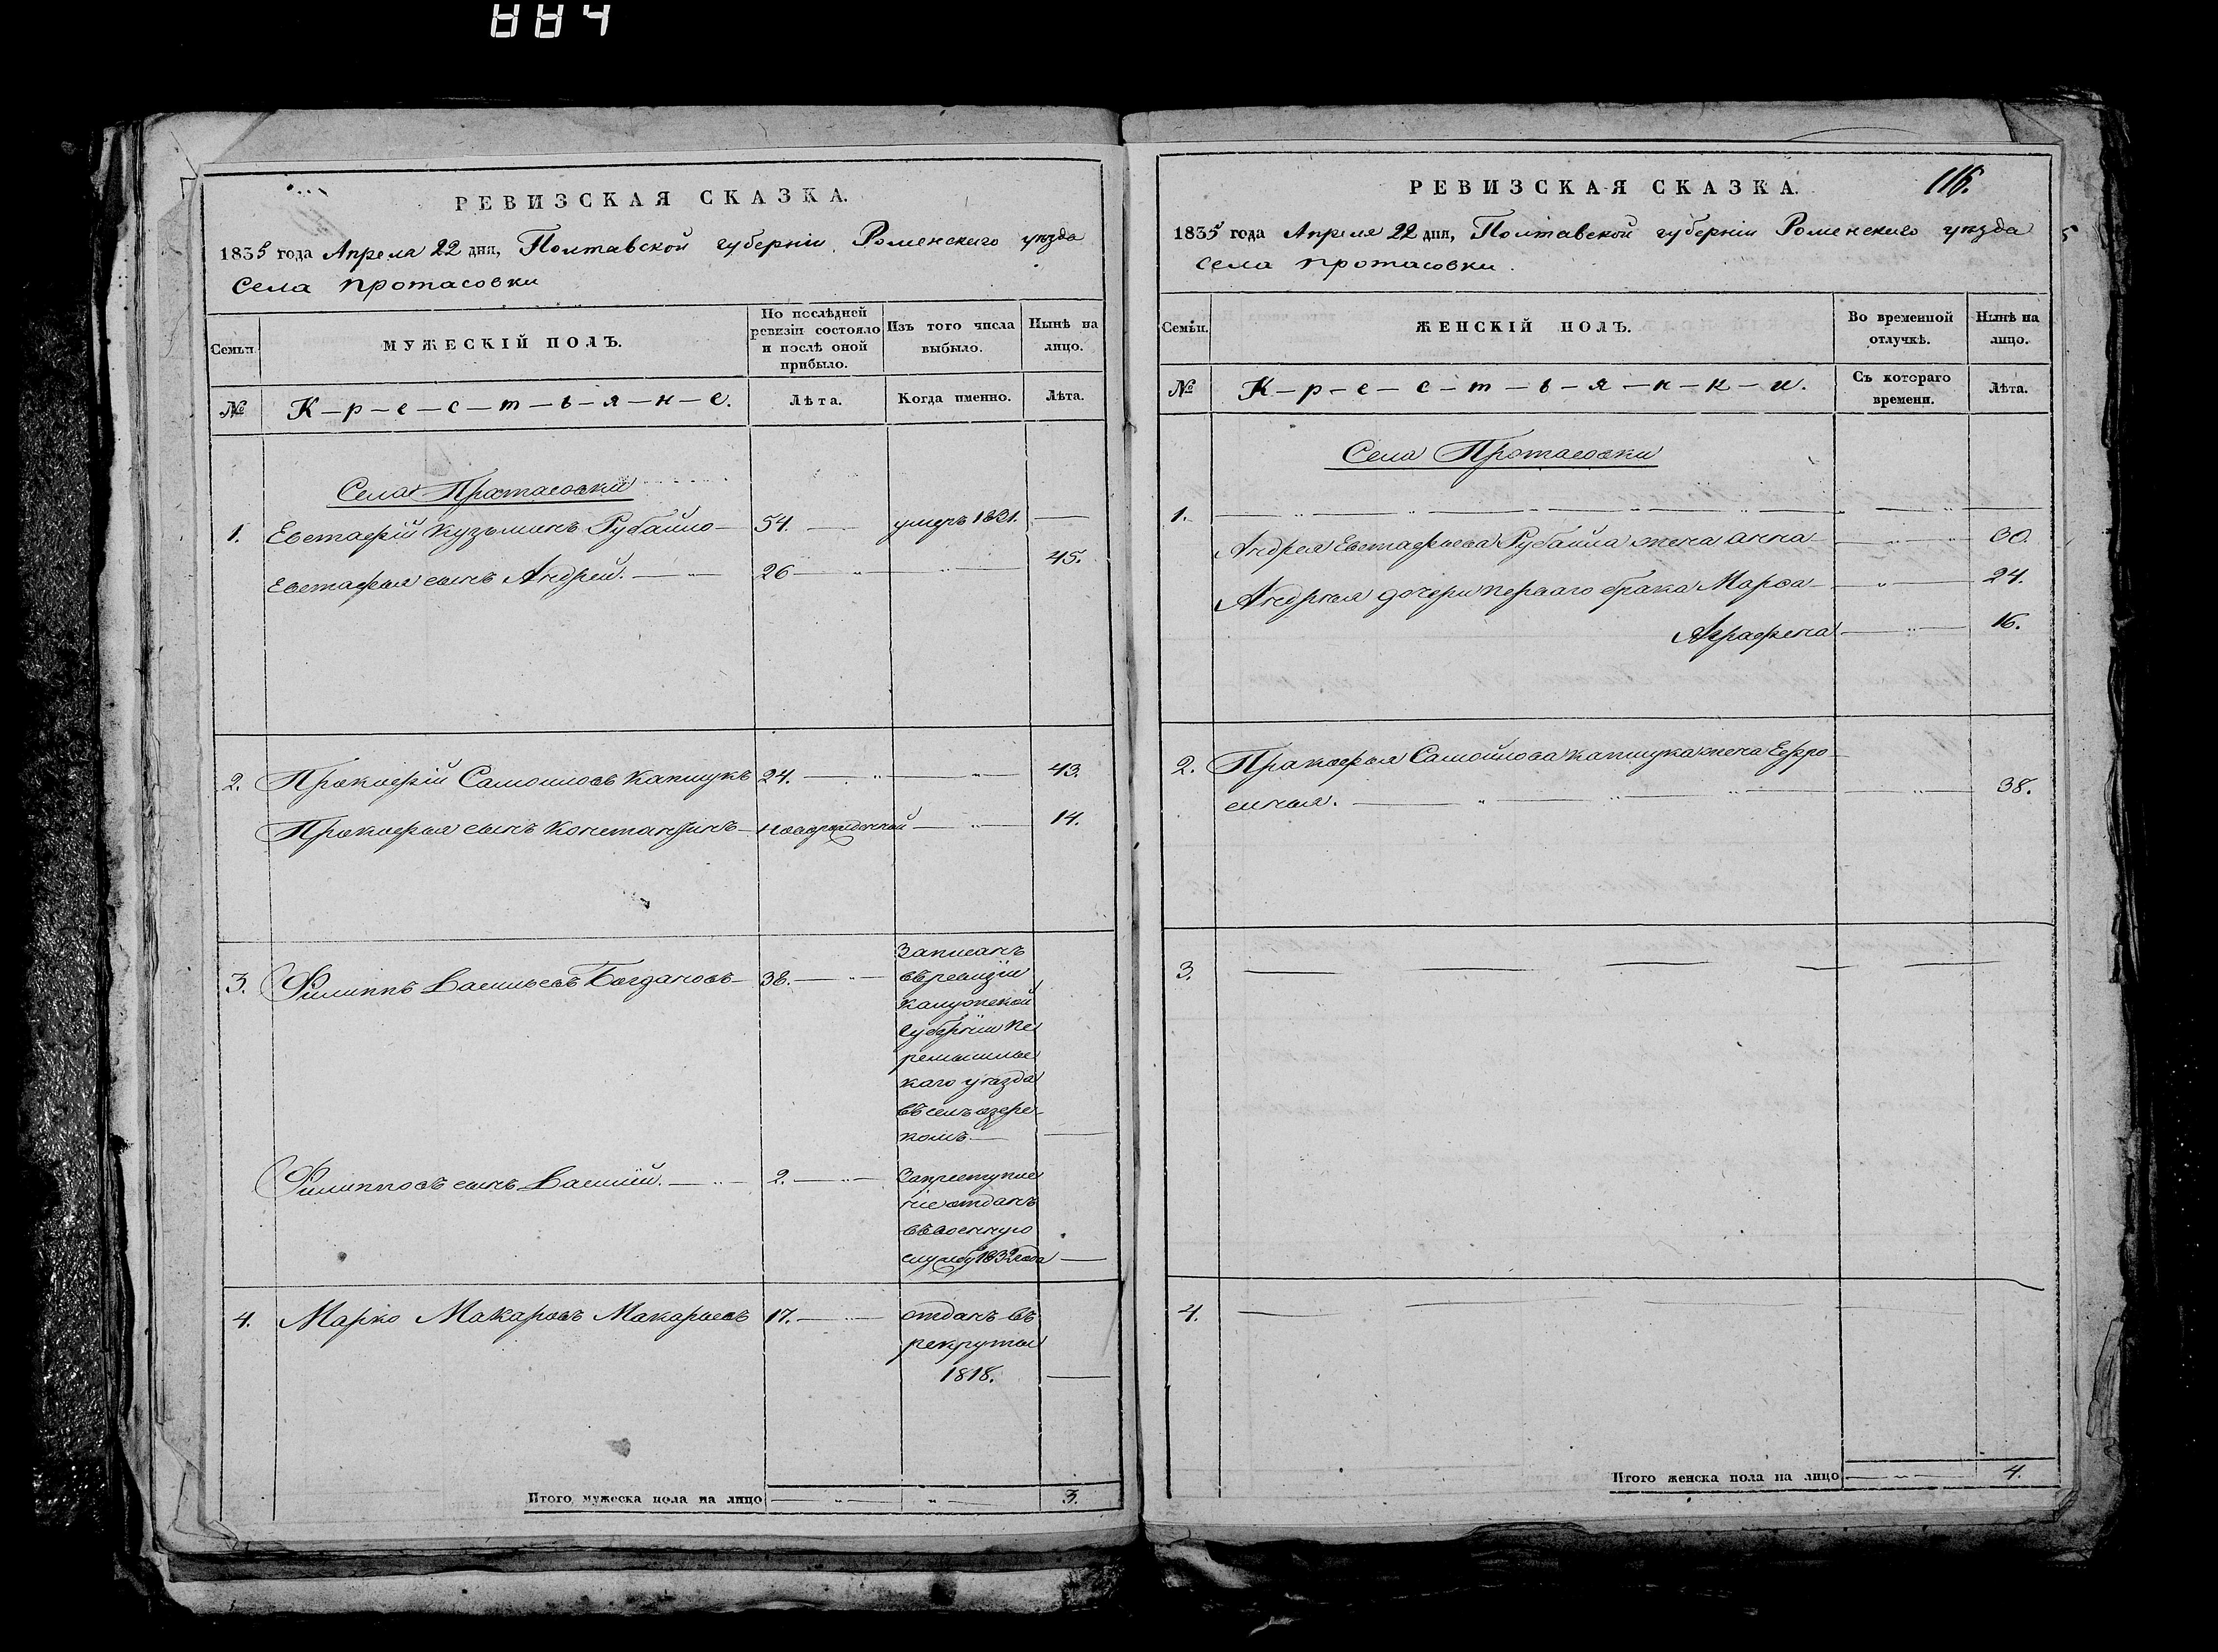 884
РЕВИЗСКАЯ СКАЗКА.
1835 года Апреля 22 дня, Полтавской губернiи Роменскаго уѣзда
Села Протасовки
Семьи.
МУЖЕСКІЙ ПОЛЪ.
По послѣдней ревизіи состояло и послѣ оной прибыло.
Изъ того числа выбыло.
Нынѣ на лицо.
№
К-р-е-с-т-ь-я-н-е.
Лѣта.
Когда именно.
Лѣта.
Села Протасовки
1. Евстафій Кузьминъ Рубайло 54. умеръ 1821.
Евстафья сынъ Андрей. 26 45.
2. Прокофій Самойловъ Капшукъ 24. 43.
Прокофья сынъ Константинъ новорожденной 14.
3. Филиппъ Васильевъ Богдановъ 38. Записанъ
въ ревизіи
Калужской
губерніи Пе
ремышльс
каго уѣзда
въ селѣ озерс
комъ
Филипповъ сынъ Василій. 2. За преступле
ніе отданъ
въ военную
службу 1832 года
4. Марко Макаровъ Макарьевъ 17. отданъ въ
рекруты
1818.
Итого мужеска пола на лицо 3.
РЕВИЗСКАЯ СКАЗКА.
116.
1835 года Апреля 22 дня, Полтавской губерніи Роменскаго уѣзда
Села Протасовки.
Семьи.
ЖЕНСКІЙ ПОЛЪ.
Во временной отлучкѣ.
Нынѣ на лицо.
№
К-р-е-с-т-ь-я-н-к-и.
Съ котораго времени.
Лѣта.
Села Протасовки
1.
Андрея Евстафьева Рубайла жена Анна 30.
Андрея дочери перваго брака Марфа 24.
Аграфена 16.
2. Прокофья Самойлова Капшука жена Ефро
синья. 38.
3.
4.
Итого женска пола на лицо 4.